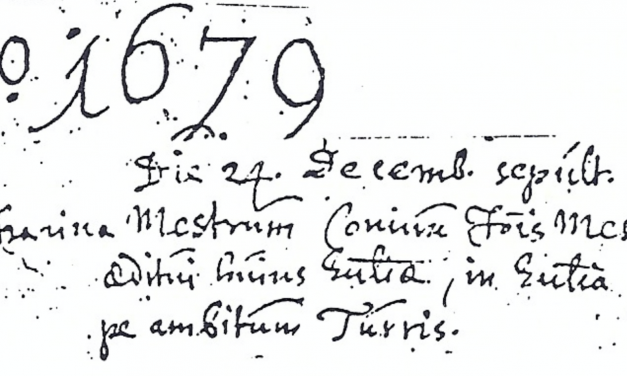 o. 1679
Die 24. Decemb. sepult.
harina Mestrum Coniux Jois Mes
æditui huius Ecclīæ, in Ecclīa
pe ambitum Turris.